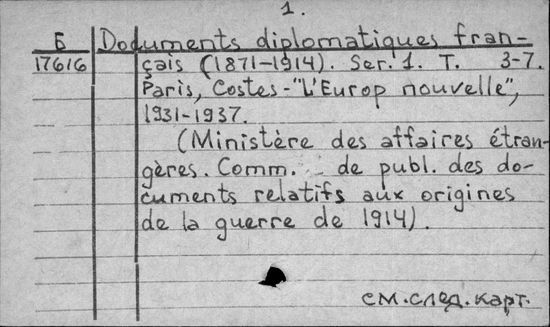 1.
Б Documents diplomatiques fran-
17616 çais (1871-1914). Ser. 1. T. 3-7.
Paris, Costes-"L'Europ nouvelle",
1931-1937.
(Ministère des affaires étran-
gères. Comm. de publ. des do-
cuments relatifs aux origines
de la guerre de 1914).
см. след. карт.